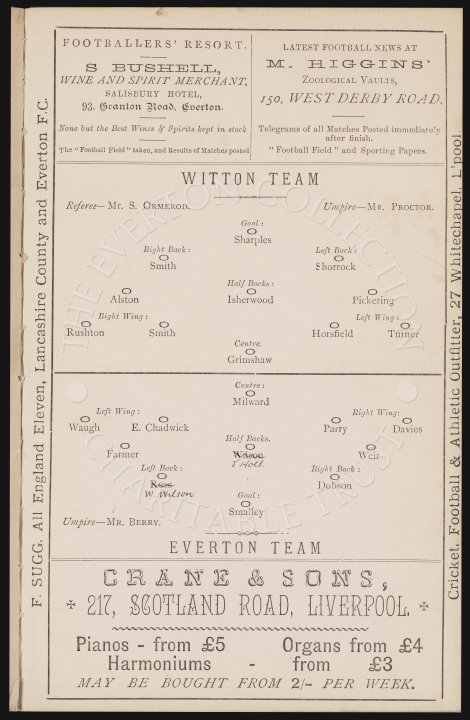 FOOTBALLERS' RESORT.
S BUSHELL,
WINE AND SPIRIT MERCHANT,
SALISBURY HOTEL,
93, Granton Road, Everton.
None but the Best Wines & Spirits kept in stock
The "Football Field" taken, and Results of Matches posted
LATEST FOOTBALL NEWS AT
M. HIGGINS'
ZOOLOGICAL VAULTS,
150, WEST DERBY ROAD.
Telegrams of all Matches Posted immediately
after finish.
"Football Field" and Sporting Papers.
WITTON TEAM
Referee—MR. S. ORMEROD. Umpire—MR. PROCTOR.
Goal:
Sharples
Right Back: Left Back:
Smith Shorrock
Half Backs:
Alston Isherwood Pickering
Right Wing: Left Wing:
Rushton Smith Horsfield Turner
Centre.
Grimshaw
Centre:
Milward
Left Wing: Right Wing:
Waugh E. Chadwick Parry Davies
Half Backs.
Farmer Wilson Weir
T Holt.
Left Back: Right Back:
Ross Dobson
W. Wilson
Goal:
Smalley
Umpire—MR. BERRY.
EVERTON TEAM
CRANE & SONS,
217, SCOTLAND ROAD, LIVERPOOL.
Pianos - from £5 Organs from £4
Harmoniums - from £3
MAY BE BOUGHT FROM 2/- PER WEEK.
F. SUGG, All England Eleven, Lancashire County and Everton F.C.
Cricket, Football & Athletic Outfitter, 27 Whitechapel, L'pool
THE EVERTON COLLECTION
CHARITABLE TRUST